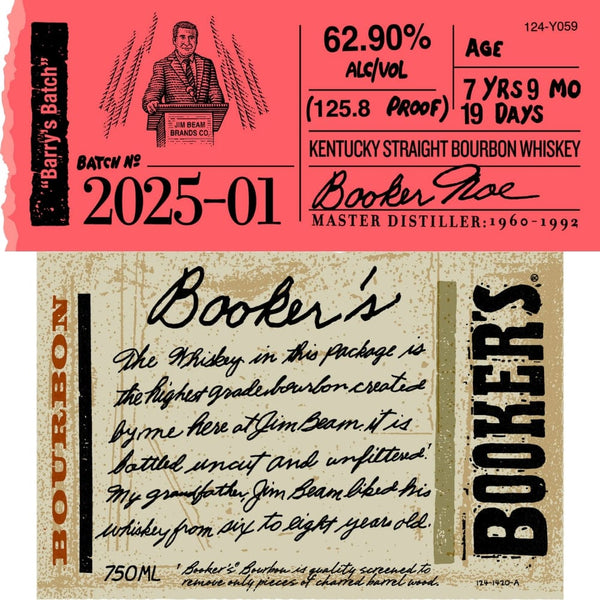 "Barry's Batch"
JIM BEAM
BRANDS CO.
BATCH Nº
2025-01
62.90%
ALC/VOL
(125.8 PROOF)
124-Y059
AGE
7 YRS 9 MO
19 DAYS
KENTUCKY STRAIGHT BOURBON WHISKEY
Booker Noe
MASTER DISTILLER: 1960-1992
BOURBON
Booker's
The Whiskey in this package is
the highest grade bourbon created
by me here at Jim Beam. it is
bottled uncut and unfiltered¹
My grandfather, Jim Beam liked his
whiskey from six to eight years old.
750ML
¹ Booker's® Bourbon is quality screened to
remove only pieces of charred barrel wood.
BOOKER'S®
124-1420-A